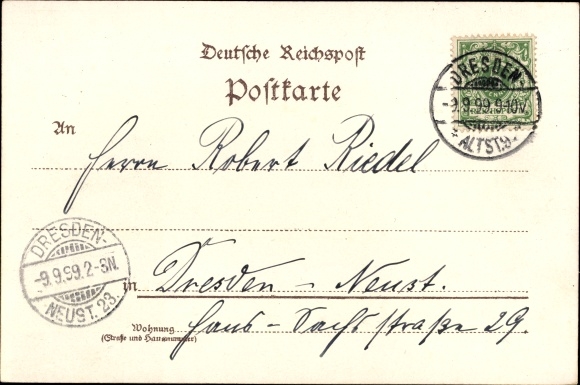 Deutsche Reichspost
Postkarte
DRESDEN-
-9.9.99.9-10V.
* ALTST.9 *
An
Herrn Robert Riedel
DRESDEN-
-9.9.99.2-3N.
NEUST. 23.
in Dresden - Neust.
Wohnung
(Straße und Hausnummer)
Hans - Sachs straße 29.